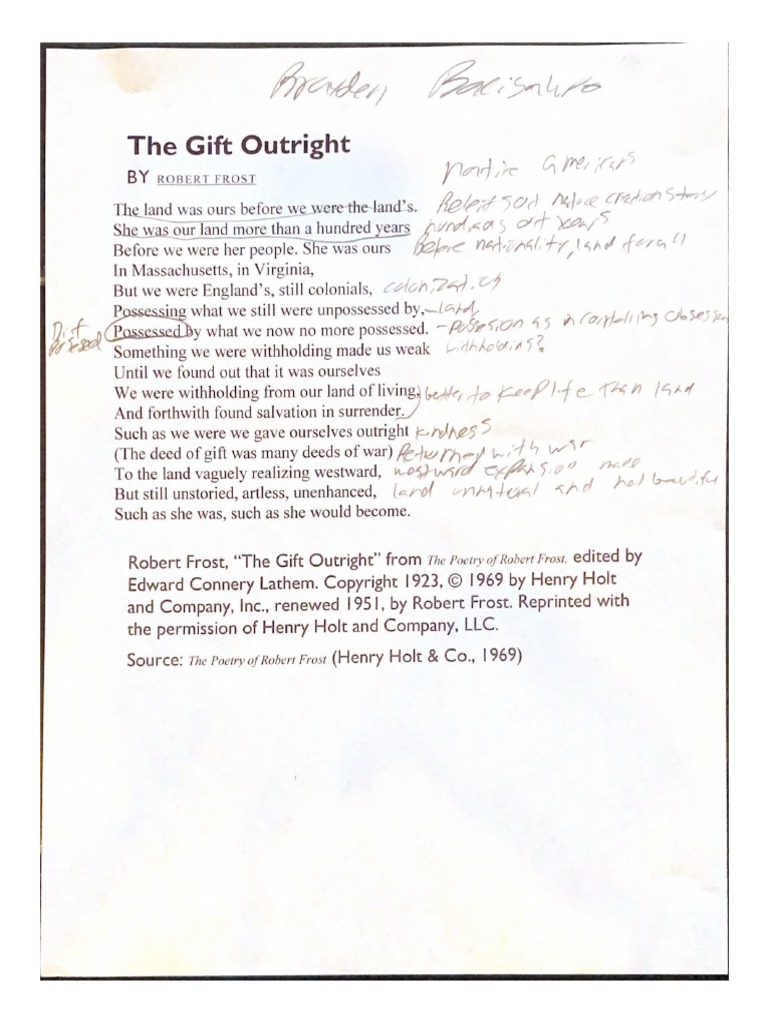 Brayden
The Gift Outright
BY ROBERT FROST
native americans
The land was ours before we were the land's. native creation story
She was our land more than a hundred years years
Before we were her people. She was ours Before nationality, land for all
In Massachusetts, in Virginia,
But we were England's, still colonials, colonization
Possessing what we still were unpossessed by, – land
Possessed by what we now no more possessed. – possesion as in controlling obsession
Something we were withholding made us weak withholding?
Until we found out that it was ourselves
We were withholding from our land of living, better to keep life than land
And forthwith found salvation in surrender.
Such as we were we gave ourselves outright kindness
(The deed of gift was many deeds of war) Returned with war
To the land vaguely realizing westward, westward expansion made
But still unstoried, artless, unenhanced, land unnatural and not beautiful
Such as she was, such as she would become.
Robert Frost, “The Gift Outright” from The Poetry of Robert Frost, edited by
Edward Connery Lathem. Copyright 1923, © 1969 by Henry Holt
and Company, Inc., renewed 1951, by Robert Frost. Reprinted with
the permission of Henry Holt and Company, LLC.
Source: The Poetry of Robert Frost (Henry Holt & Co., 1969)